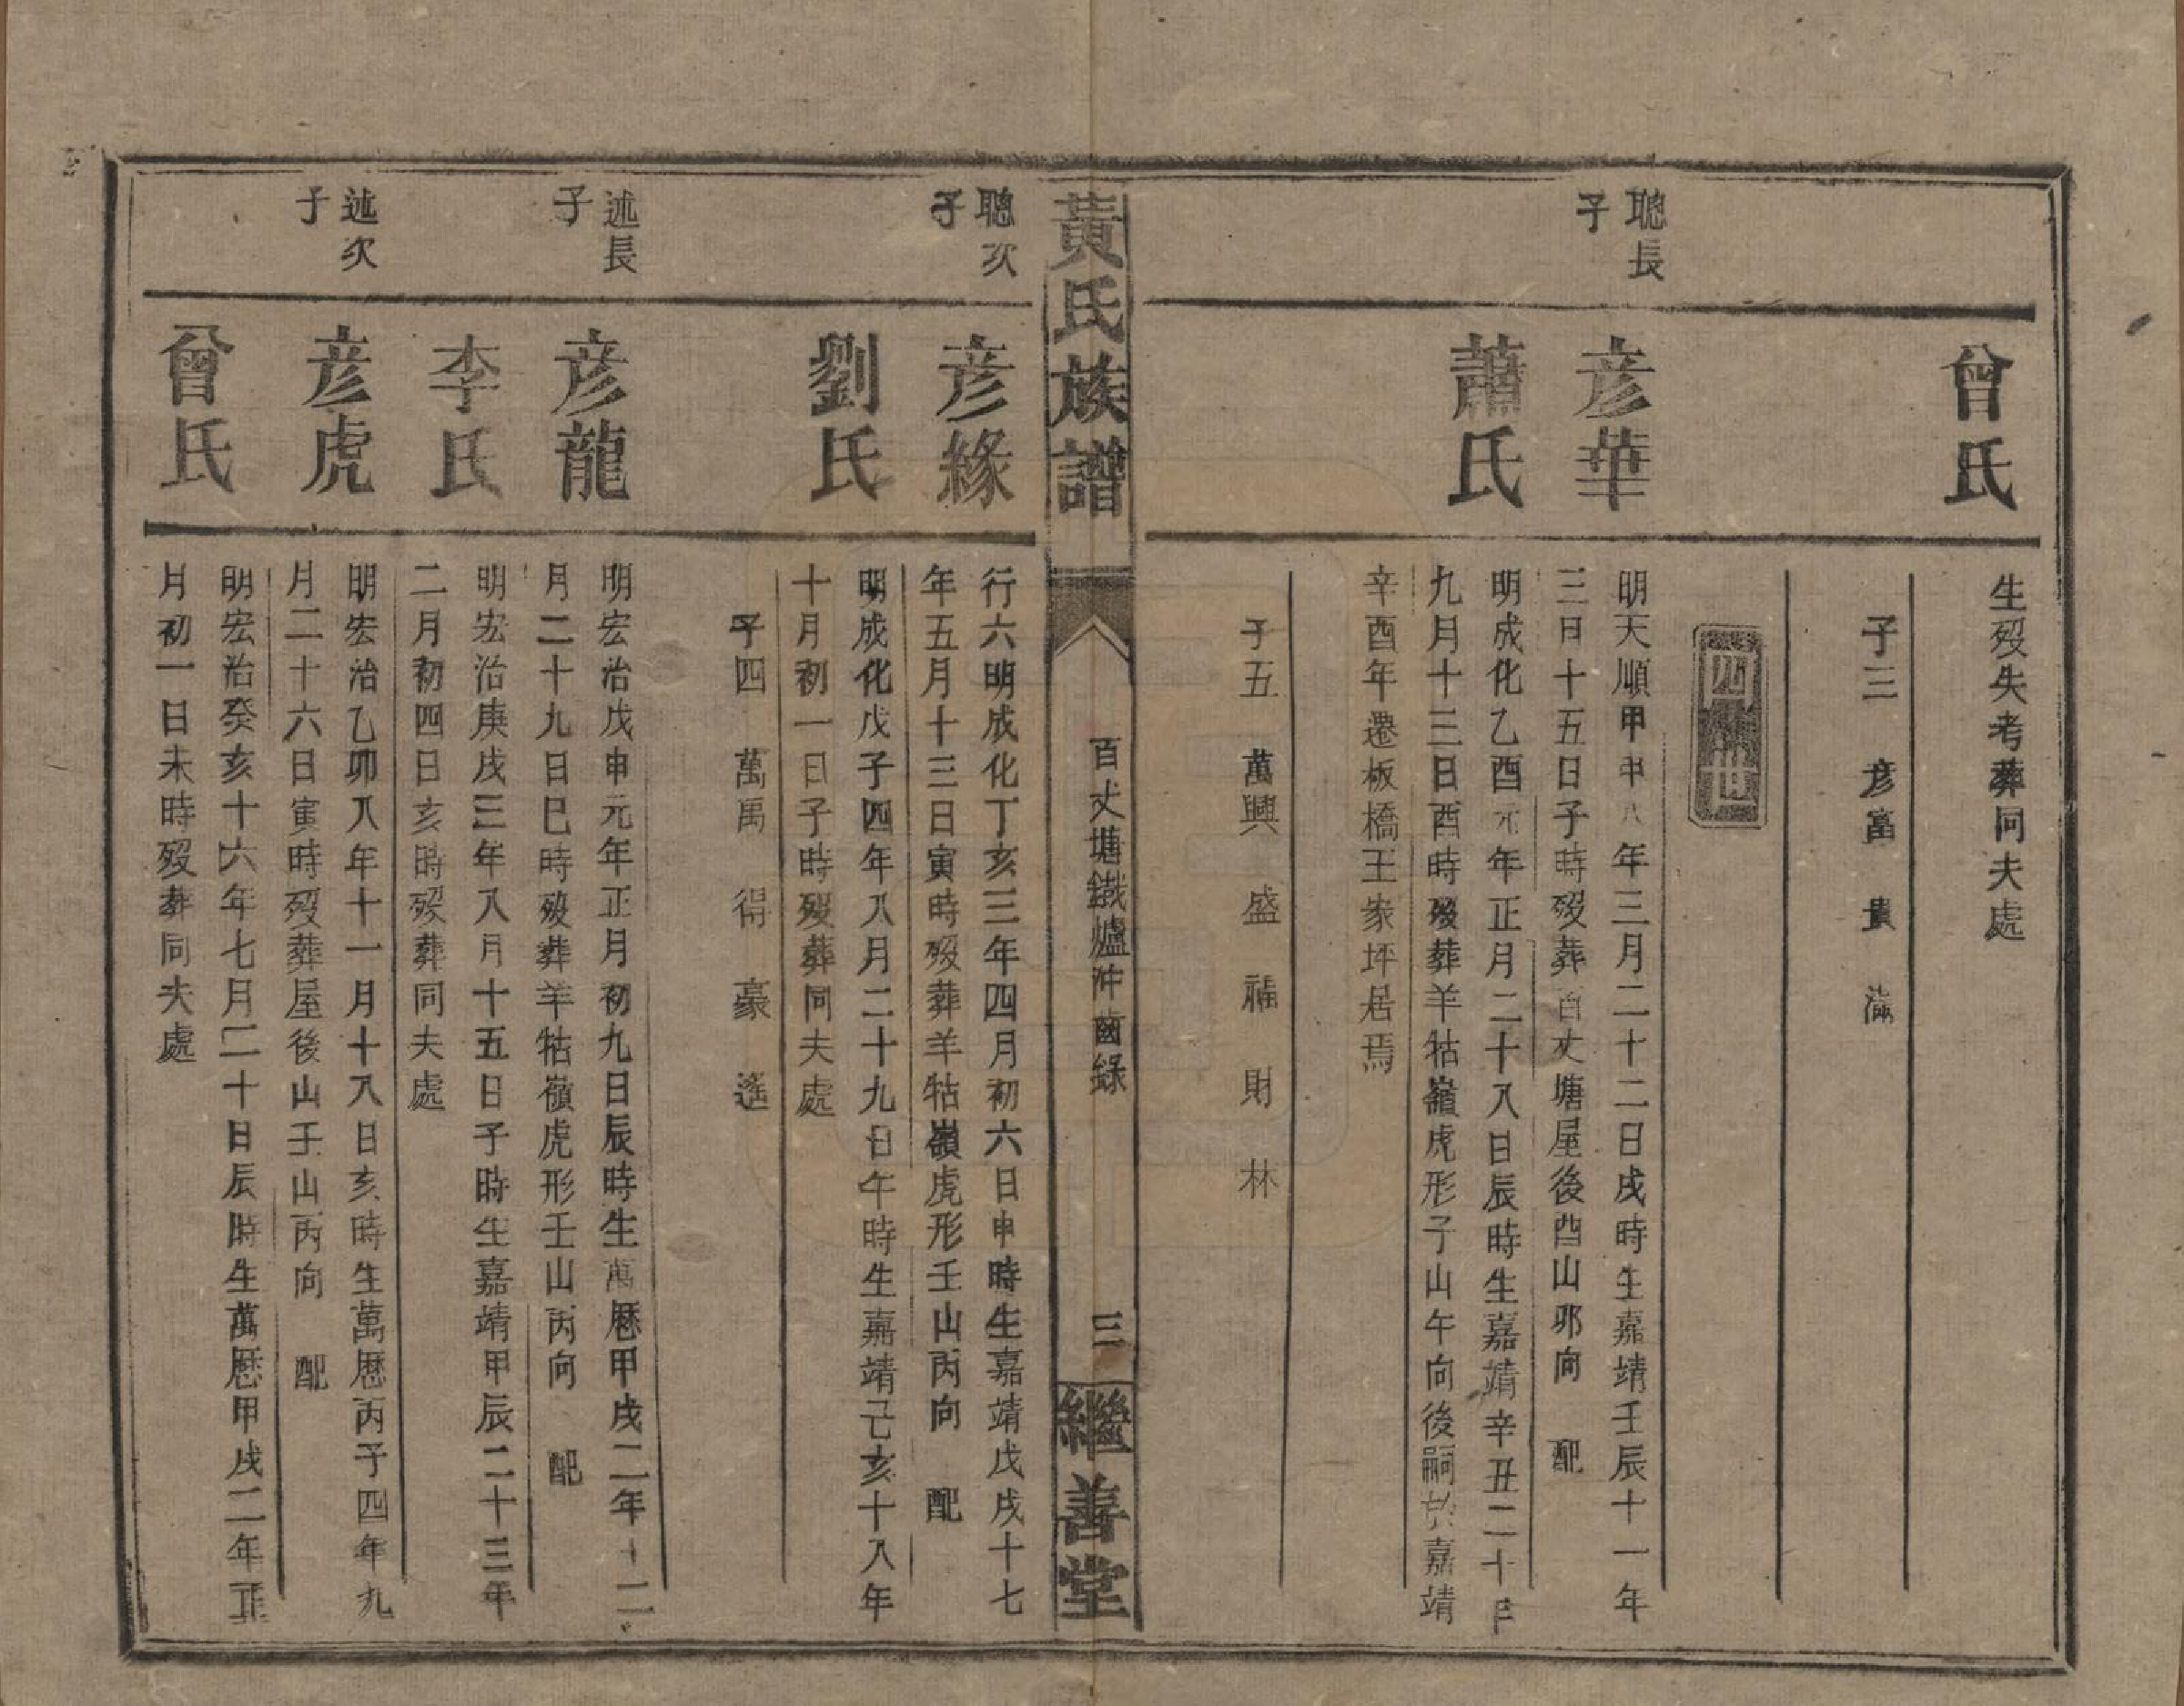 曾氏
生歿失考葬同夫處
子三 彦富 貴 滿
四世
聰長
子
彦華
明天順甲申八年三月二十二日戌時生嘉靖壬辰十一年
三日十五日子時歿葬百丈塘屋後酉山夘向 配
蕭氏
明成化乙酉元年正月二十八日辰時生嘉靖辛丑二十年
九月十三日酉時歿葬羊牯嶺虎形子山午向後嗣於嘉靖
辛酉年遷板橋王家坪居焉
子五 萬興 盛 福 財 林
黃氏族譜
百丈塘鐵爐沖齒錄
三
繼善堂
聰次
子
彦緣
行六明成化丁亥三年四月初六日申時生嘉靖戊戌十七
年五月十三日寅時歿葬羊牯嶺虎形壬山丙向 配
劉氏
明成化戊子四年八月二十九日午時生嘉靖己亥十八年
十月初一日子時歿葬同夫處
子四 萬禹 得 豪 遙
述長
子
彦龍
明宏治戊申元年正月初九日辰時生萬曆甲戌二年十二
月二十九日巳時歿葬羊牯嶺虎形壬山丙向 配
李氏
明宏治庚戌三年八月十五日子時生嘉靖甲辰二十三年
二月初四日亥時歿葬同夫處
述次
子
彦虎
明宏治乙卯八年十一月十八日亥時生萬曆丙子四年九
月二十六日寅時歿葬屋後山壬山丙向 配
曾氏
明宏治癸亥十六年七月二十日辰時生萬曆甲戌二年正
月初一日未時歿葬同夫處